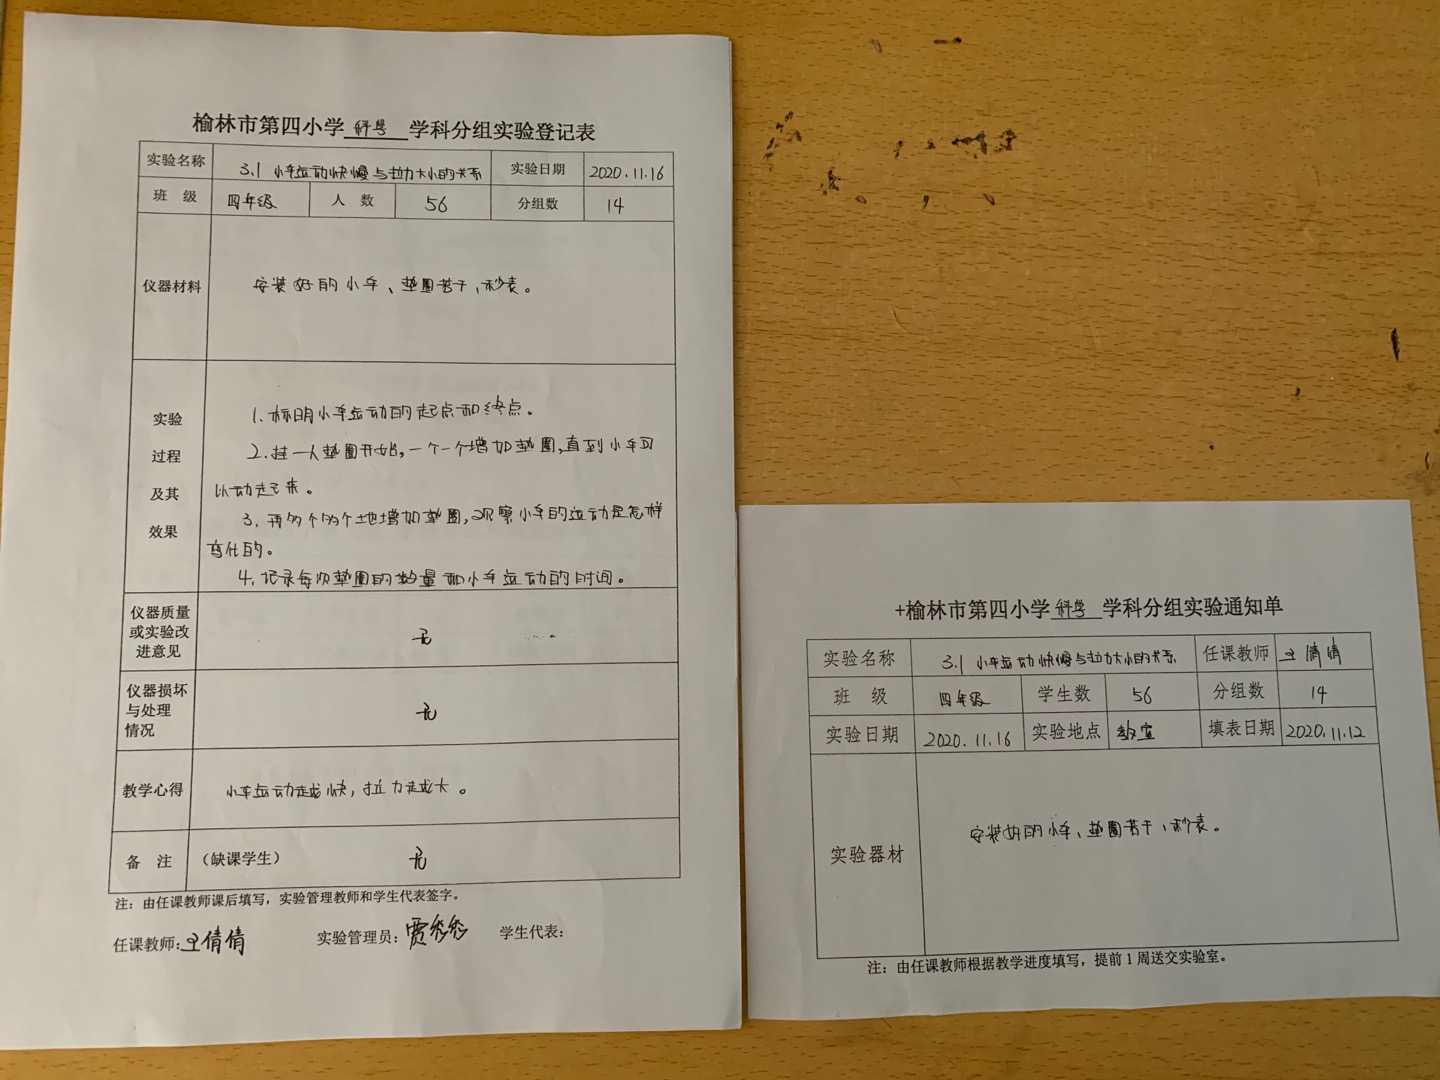 榆林市第四小学科学学科分组实验登记表
实验名称 3.1 小车运动快慢与拉力大小的关系 实验日期 2020.11.16
班 级 四年级 人 数 56 分组数 14
仪器材料 安装好的小车、垫圈若干、秒表。
实验
过程
及其
效果
1. 标明小车运动的起点和终点。
2. 挂一个垫圈开始,一个一个增加垫圈,直到小车可
以动起来。
3. 再多个多个地增加垫圈,观察小车的运动是怎样
变化的。
4. 记录每次垫圈的数量和小车运动的时间。
仪器质量
或实验改
进意见
无
仪器损坏
与处理
情况
无
教学心得 小车运动越快,拉力越大。
备 注 (缺课学生) 无
注:由任课教师课后填写,实验管理教师和学生代表签字。
任课教师:王倩倩 实验管理员: 学生代表:
+榆林市第四小学科学学科分组实验通知单
实验名称 3.1 小车运动快慢与拉力大小的关系 任课教师 王倩倩
班 级 四年级 学生数 56 分组数 14
实验日期 2020.11.16 实验地点 教室 填表日期 2020.11.12
实验器材 安装好的小车、垫圈若干、秒表。
注:由任课教师根据教学进度填写,提前1周送交实验室。